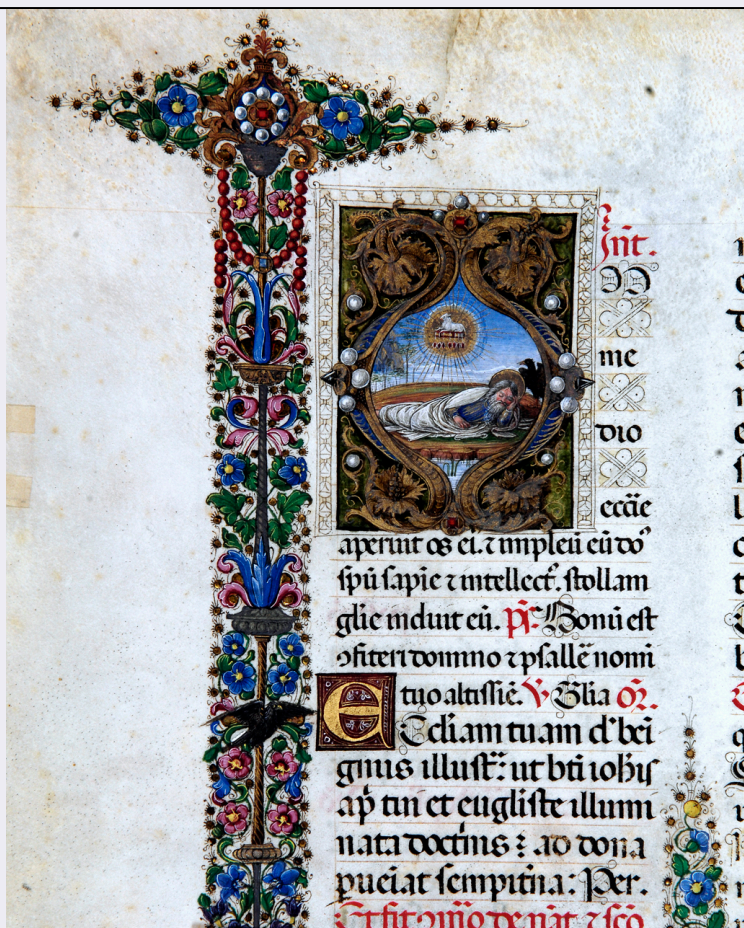 Int.
N
me
dio
eccãe
aperuit os ei. ⁊ impleũ eũ do᷒
spũ sapie ⁊ intellect̃. stollam
glie induit eũ. ps̃. Bonũ est
ꝯfiteri domino ⁊ psallẽ nomi
tuo altissiẽ. V Glia or̃.
Ecclĩam tuam d᷒ bei
gnus illust̃: ut bti iohis
ap̃ tui et eugliste illumi
nata doctinis: ad dona
pueiat sempitna: Per.
Et fit ꝯmio de nat. ⁊ sco